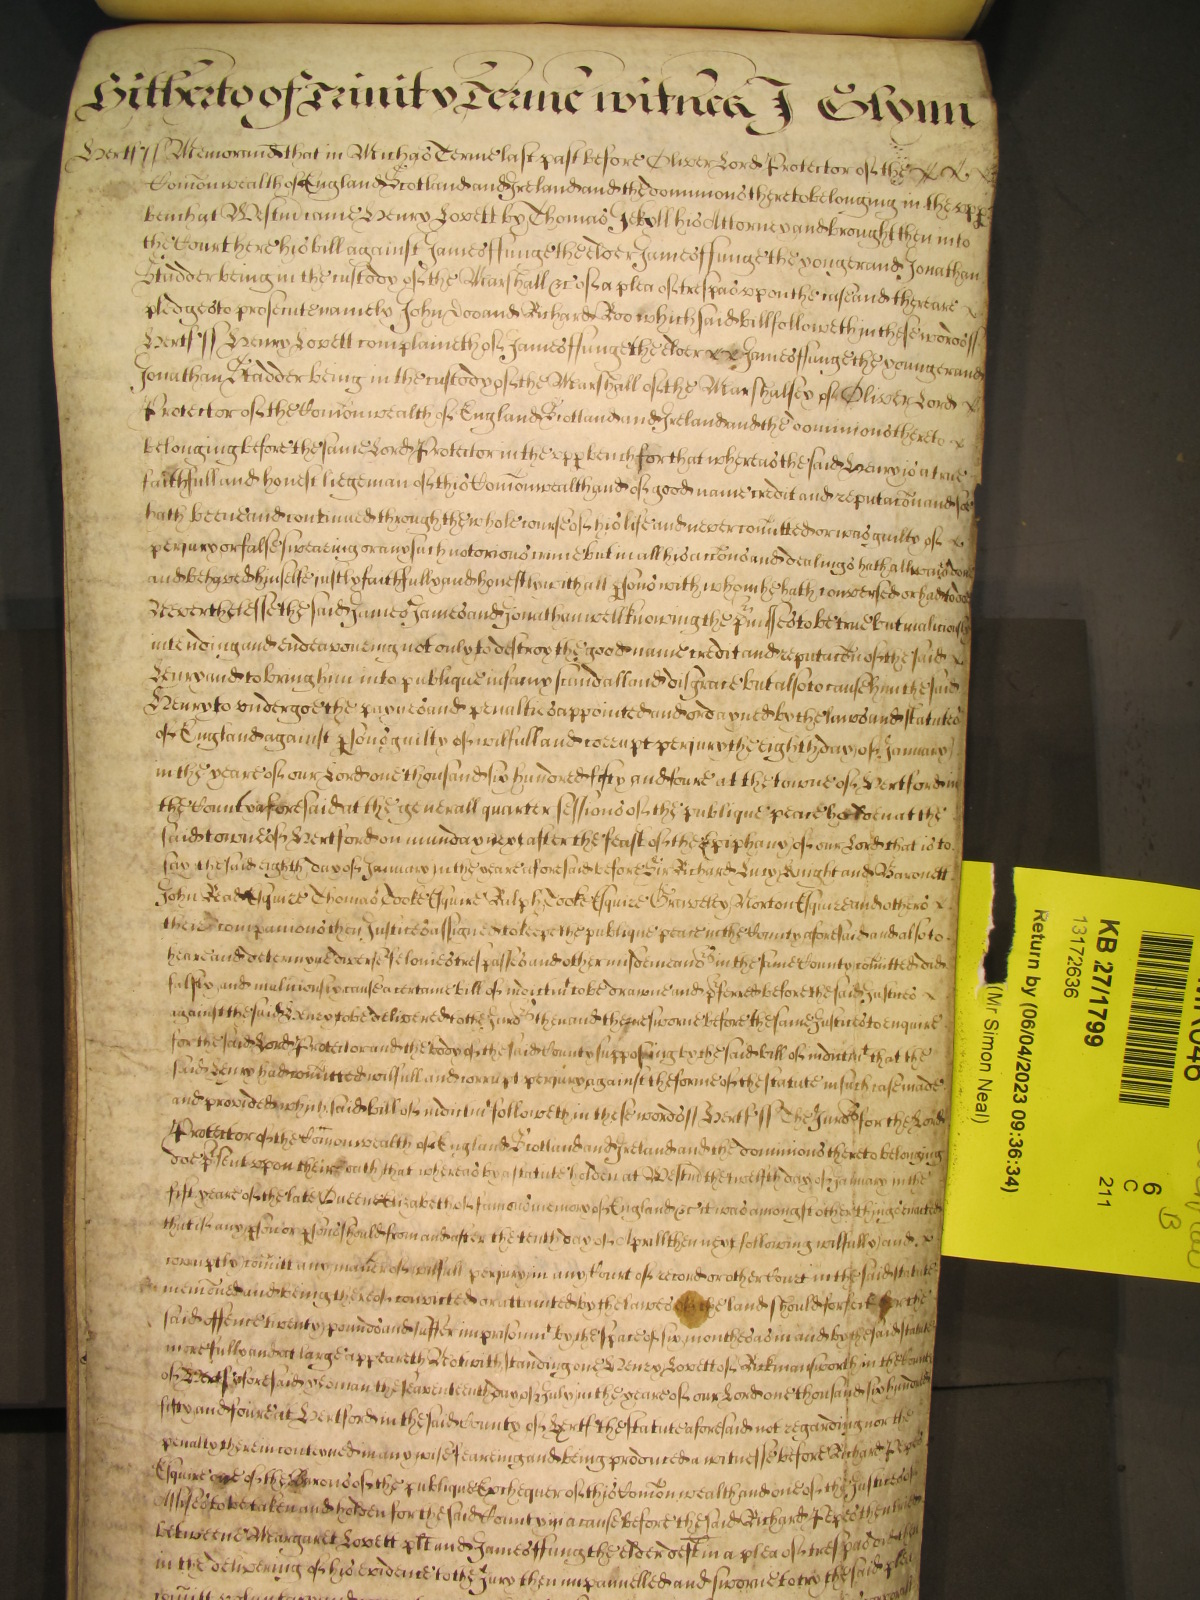 Hitherto of Trinity Terme witnes J Glynn
Hertf ss Memorand that in Michas Terme last past before Oliver Lord Protector of the
Comonwealth of England Scotland and Ireland and the dominions thereto belonging in the upp
bench at Westm came Henry Lovett by Thomas Jekyll his Attorney and brought then into
the Court here his bill against James ffunge the elder James ffunge the younger and Jonathan
Kidder being in the custody of the Marshall &c of a plea of trespas uppon the case and there are
pledges to prosecute namely John Doo and Richard Roo which said bill followeth in these words ss
Hertf ss Henry Lovett complaineth of James ffunge the elder James ffunge the younger and
Jonathan Kidder being in the custody of the Marshall of the Marshalsey of Oliver Lord
Protector of the Comonwealth of England Scotland and Ireland and the dominions thereto
belonging before the same Lord Protector in the upp bench for that whereas the said Henry is a true
faithfull and honest liegeman of this Comonwealth and of good name credit and reputacon and soe
hath beene and continued through the whole course of his life and never comitted or was guilty of
periury or false swearing or any such notorious crime but in all his accons and dealings hath allwaies done
and behaved himselfe justly faithfully and honestly with all psons with whom he hath conversed or had to doe
Neverthelesse the said James James and Jonathan well knowing the pmisses to be true but maliciously
intending and endeavoureing not only to destroy the good name credit and reputacon of the said
Henry and to bring him into publique infamy scandall and disgrace but also to cause him the said
Henry to undergoe the paynes and penalties appointed and ordayned by the laws and statutes
of England against psons guilty of wilfull and corrupt periury the eighth day of January
in the yeare of our Lord one thousand six hundred fifty and foure at the towne of Hertford in
the County aforesaid at the generall quarter sessions of the publique peace holden at the
said towne of Hertford on munday next after the feast of the Epiphany of our Lord that is to
say the said eighth day of January in the yeare aforesaid before Sir Richard Lucy Knight and Baronett
John Read Esquire Thomas Tooke Esquire Ralph Tooke Esquire Gravelly Norton Esquire and others
their companions then Justices assigned to keepe the publique peace in the County aforesaid and also to
heare and determyne diverse felonies trespasses and other misdemeanors in the same County comitted did
falsly and maliciously cause a certaine bill of indictmt to be drawne and pferred before the said Justices
against the said Henry to be delivered to the Jurors then and there sworne before the same Justices to enquire
for the said Lord Protector and the body of the said County supposing by the said bill of indictmt that the
said Henry had comitted wilfull and corrupt periury against the forme of the statute in such case made
and provided which said bill of indictmt followeth in these words ss Hertf ss The Jurors for the Lord
Protector of the Comonwealth of England Scotland and Ireland and the dominions thereto belonging
doe psent upon their oath that whereas by a statute holden at Westm the twelfth day of January in the
fift yeare of the late Queene Elizabeth of famous memory of England &c it was amongst other things enacted
that if any pson or psons should from and after the tenth day of Aprill then next following wilfully and
corruptly comitt any maner of wilfull periury in any Court of record or other Court in the said statute
menconed and being thereof convicted or attainted by the lawes of the land should forfeit for the
said offence twenty pounds and suffer imprisonmt by the space of six monthes as in and by the said statute
more fully and at large appeareth Notwithstanding one Henry Lovett of Rickmansworth in the County
of Hertf aforesaid yeoman the seaventeenth day of July in the yeare of our Lord one thousand six hundred
fifty and foure at Hertford in the said County of Hertf the statute aforesaid not regarding nor the
penalty therein conteyned in any wise feareing and being produced a witnesse before Richard Pepes
Esquire one of the Barons of the publique Exchequer of this Comonwealth and one of the Justices of
Assises to be taken and holden for the said County in a cause before the said Richard Pepes then tried
betweene Margaret Lovett plt and James ffunge the elder deft in a plea of trespas did then
in the delivering of his evidence to the Jury then impannelled and sworne to try the said plea
KB 27/1799
13172636
Return by (06/04/2023 09:36:34)
(Mr Simon Neal)
6
C
211